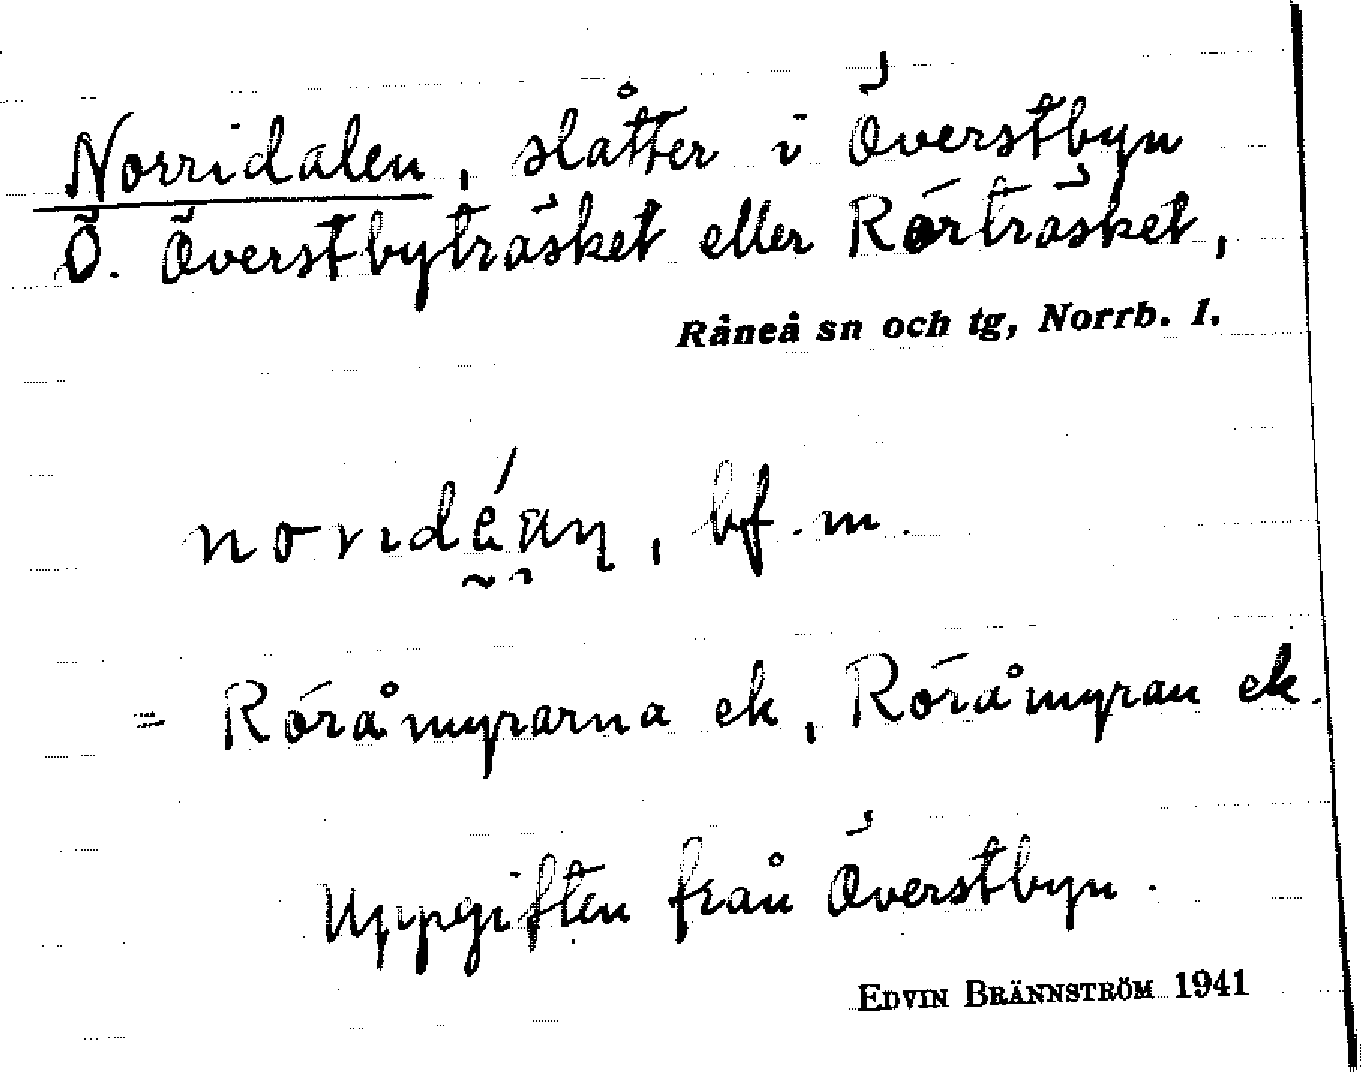 Norridalen, slåtter i Överstbyn
Ö. Överstbyträsket eller Rörträsket,
Råneå sn och tg, Norrb. l.
bf. m.
= Röråmyrarna ek, Röråmyran ek.
Uppgiften från Överstbyn.
EDVIN BRÄNNSTRÖM 1941